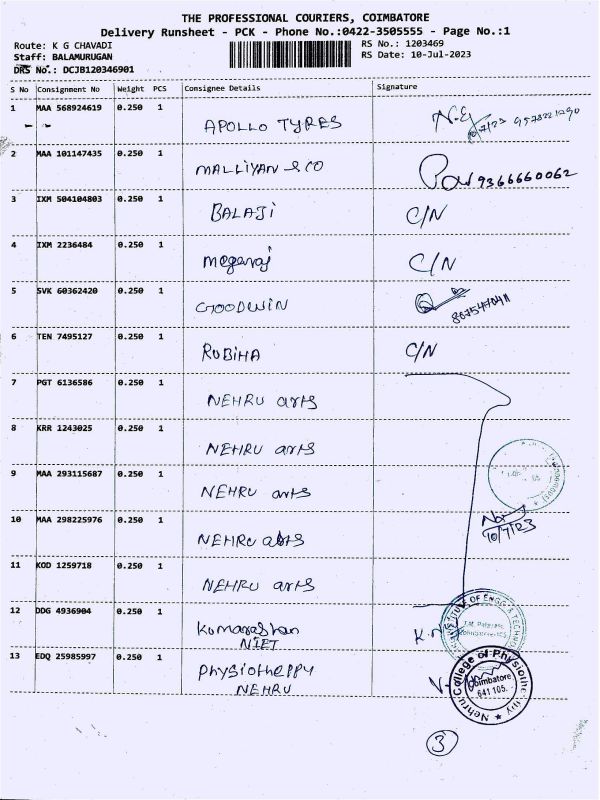 THE PROFESSIONAL COURIERS, COIMBATORE
Delivery Runsheet - PCK - Phone No.:0422-3505555 - Page No.:1
Route: K G CHAVADI
RS No.: 1203469
Staff: BALAMURUGAN
RS Date: 10-Jul-2023
DRS No.: DCJB120346901
S No Consignment No Weight PCS Consignee Details Signature
1 MAA 568924619 0.250 1
APOLLO TYRES
2 MAA 101147435 0.250 1
MALLIYAN & CO 9366660062
3 IXM 504104803 0.250 1
BALAJI C/N
4 IXM 2236484 0.250 1
meganaj C/N
5 SVK 60362420 0.250 1
GOODWIN
6 TEN 7495127 0.250 1
RUBIHA C/N
7 PGT 6136586 0.250 1
NEHRU arts
8 KRR 1243025 0.250 1
NEHRU arts
9 MAA 293115687 0.250 1
NEHRU arts
10 MAA 298225976 0.250 1
NEHRU arts
10/7/23
11 KOD 1259718 0.250 1
NEHRU arts
12 DDG 4936904 0.250 1
Kumarashan
NIET
13 EDQ 25985997 0.250 1
Physiotheppy
NEHRU
Nehru College of Physiotherapy
Coimbatore
641 105.
3